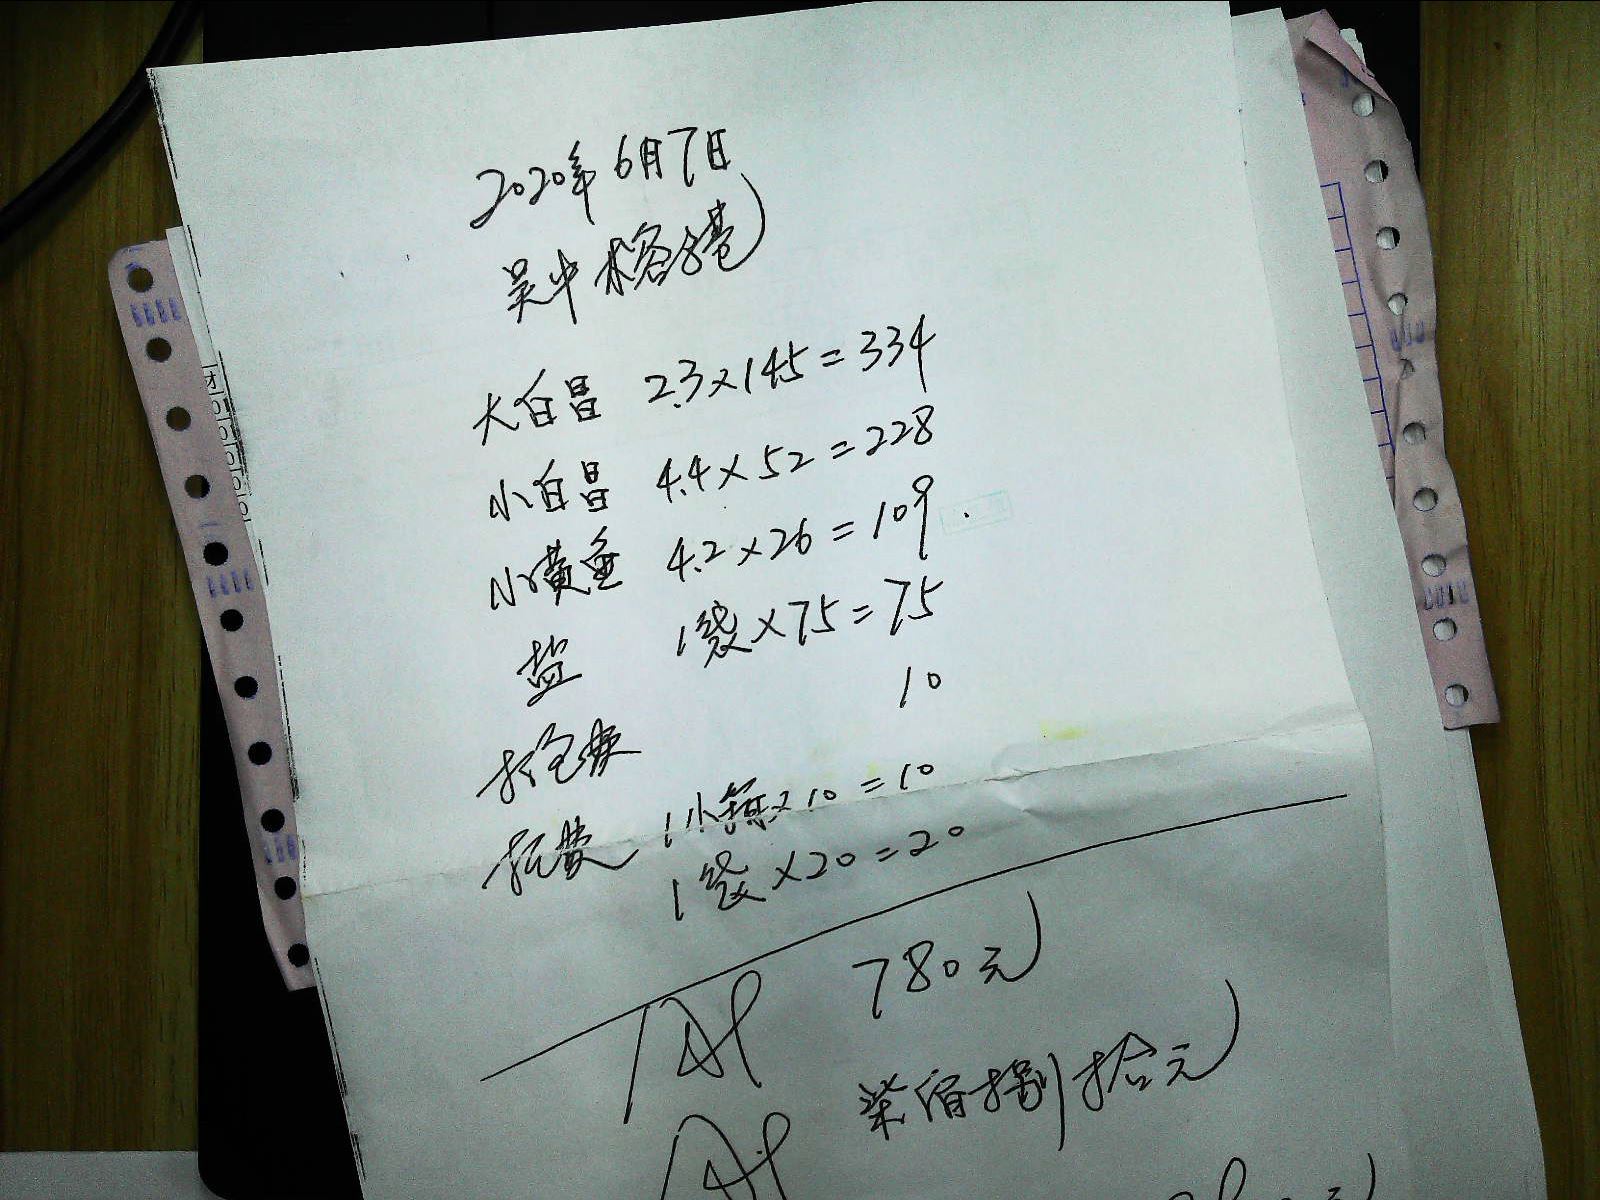 2020年6月7日
吴中榕港
大白昌 2.3×145=334
小白昌 4.4×52=228
小黄鱼 4.2×26=109
盐 1袋×75=75
打包费 10
托费 1小箱×10=10
1袋×20=20
780元
柒佰捌拾元